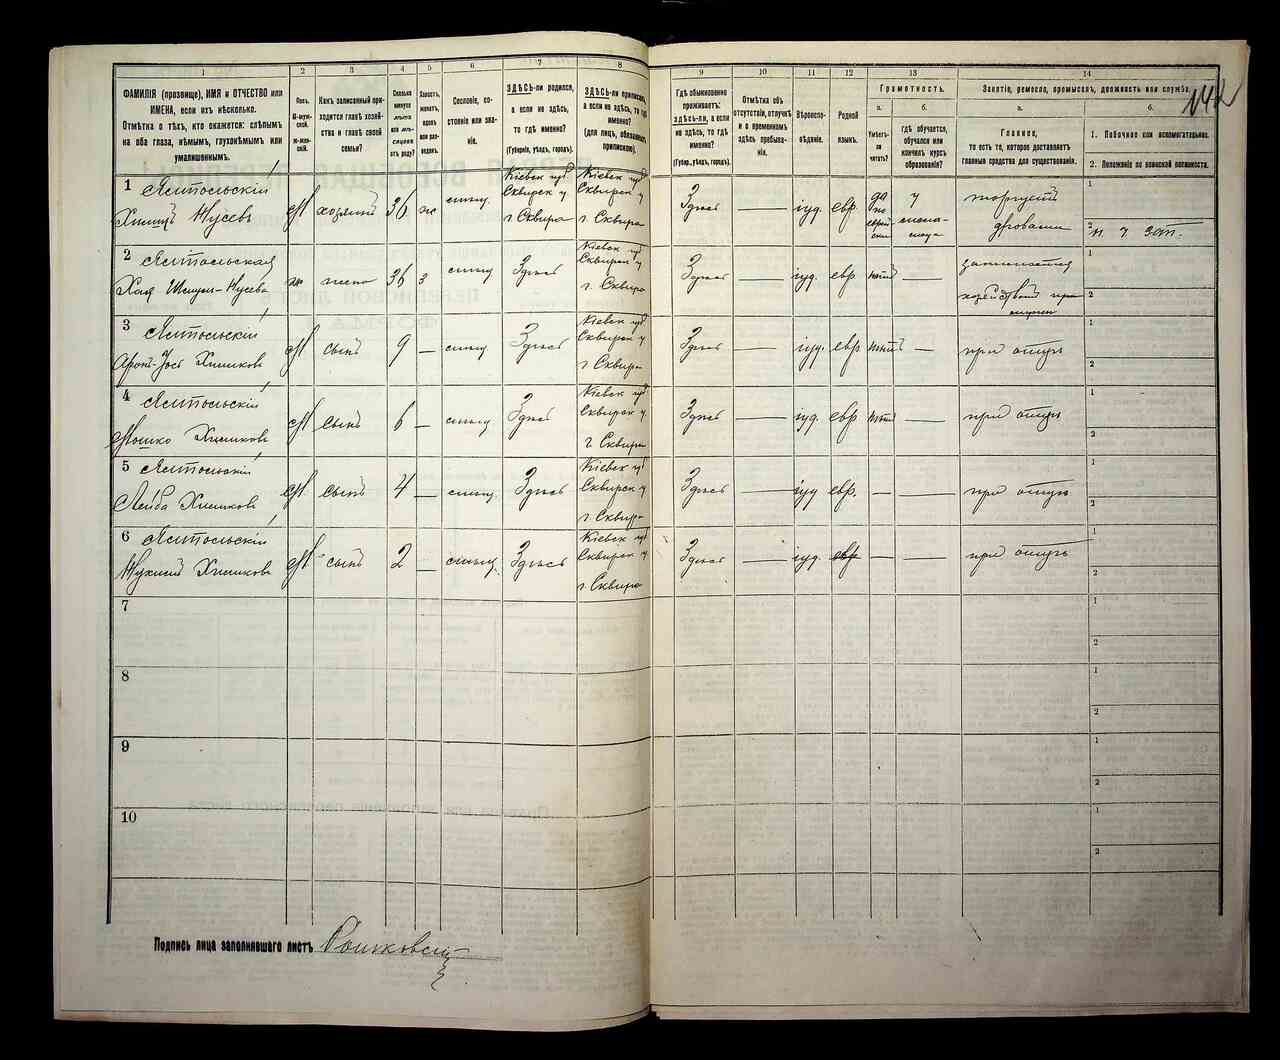 142
1 2 3 4 5 6 7 8 9 10 11 12 13 14
ФАМИЛІЯ (прозвище), ИМЯ и ОТЧЕСТВО или ИМЕНА, если ихъ нѣсколько.
Отмѣтка о тѣхъ, кто окажется: слѣпымъ на оба глаза, нѣмымъ, глухонѣмымъ или умалишеннымъ.
Полъ. М-мужской. Ж-женскій.
Какъ записанный приходится главѣ хозяйства и главѣ своей семьи?
Сколько минуло лѣтъ или мѣсяцевъ отъ роду?
Холостъ, женатъ, вдовъ или разведенъ.
Сословіе, состояніе или званіе.
ЗДѢСЬ-ли родился, а если не здѣсь, то гдѣ именно?
(Губернія, уѣздъ, городъ).
ЗДѢСЬ-ли приписанъ, а если не здѣсь, то гдѣ именно?
(для лицъ, обязанныхъ припискою).
Гдѣ обыкновенно проживаетъ: ЗДѢСЬ-ли, а если не здѣсь, то гдѣ именно?
(Губерн., уѣздъ, городъ).
Отмѣтка объ отсутствіи, отлучкѣ и о временномъ здѣсь пребываніи.
Вѣроисповѣданіе.
Родной языкъ.
Грамотность.
а. Умѣетъ-ли читать?
б. Гдѣ обучается, обучался или кончилъ курсъ образованія?
Занятіе, ремесло, промыселъ, должность или служба.
а. Главное,
то есть то, которое доставляетъ главныя средства для существованія.
б.
1. Побочное или вспомогательное.
2. Положеніе по воинской повинности.
1 Ямпольскій М хозяинъ 36 Кіевск. губ. Сквирск. у. г. Сквира Кіевск. губ. Сквирск. у. г. Сквира Здѣсь — іуд. евр. да по еврейски торгуетъ дровами 1 2
2 Ямпольская Хая жена 36 Здѣсь Кіевск. губ. Сквирск. у. г. Сквира Здѣсь — іуд. евр. нѣтъ — занимается 1 2
3 Ямпольскій М сынъ 9 — Здѣсь Кіевск. губ. Сквирск. у. г. Сквира Здѣсь — іуд. евр. нѣтъ — при отцѣ 1 2
4 Ямпольскій Мошко М сынъ 6 — Здѣсь Кіевск. губ. Сквирск. у. г. Сквира Здѣсь — іуд. евр. нѣтъ — при отцѣ 1 2
5 Ямпольскій Лейба М сынъ 4 — Здѣсь Кіевск. губ. Сквирск. у. г. Сквира Здѣсь — іуд. евр. — — при отцѣ 1 2
6 Ямпольскій М сынъ 2 — Здѣсь Кіевск. губ. Сквирск. у. г. Сквира Здѣсь — іуд. евр. — — при отцѣ 1 2
7 1 2
8 1 2
9 1 2
10 1 2
Подпись лица заполнявшаго листъ